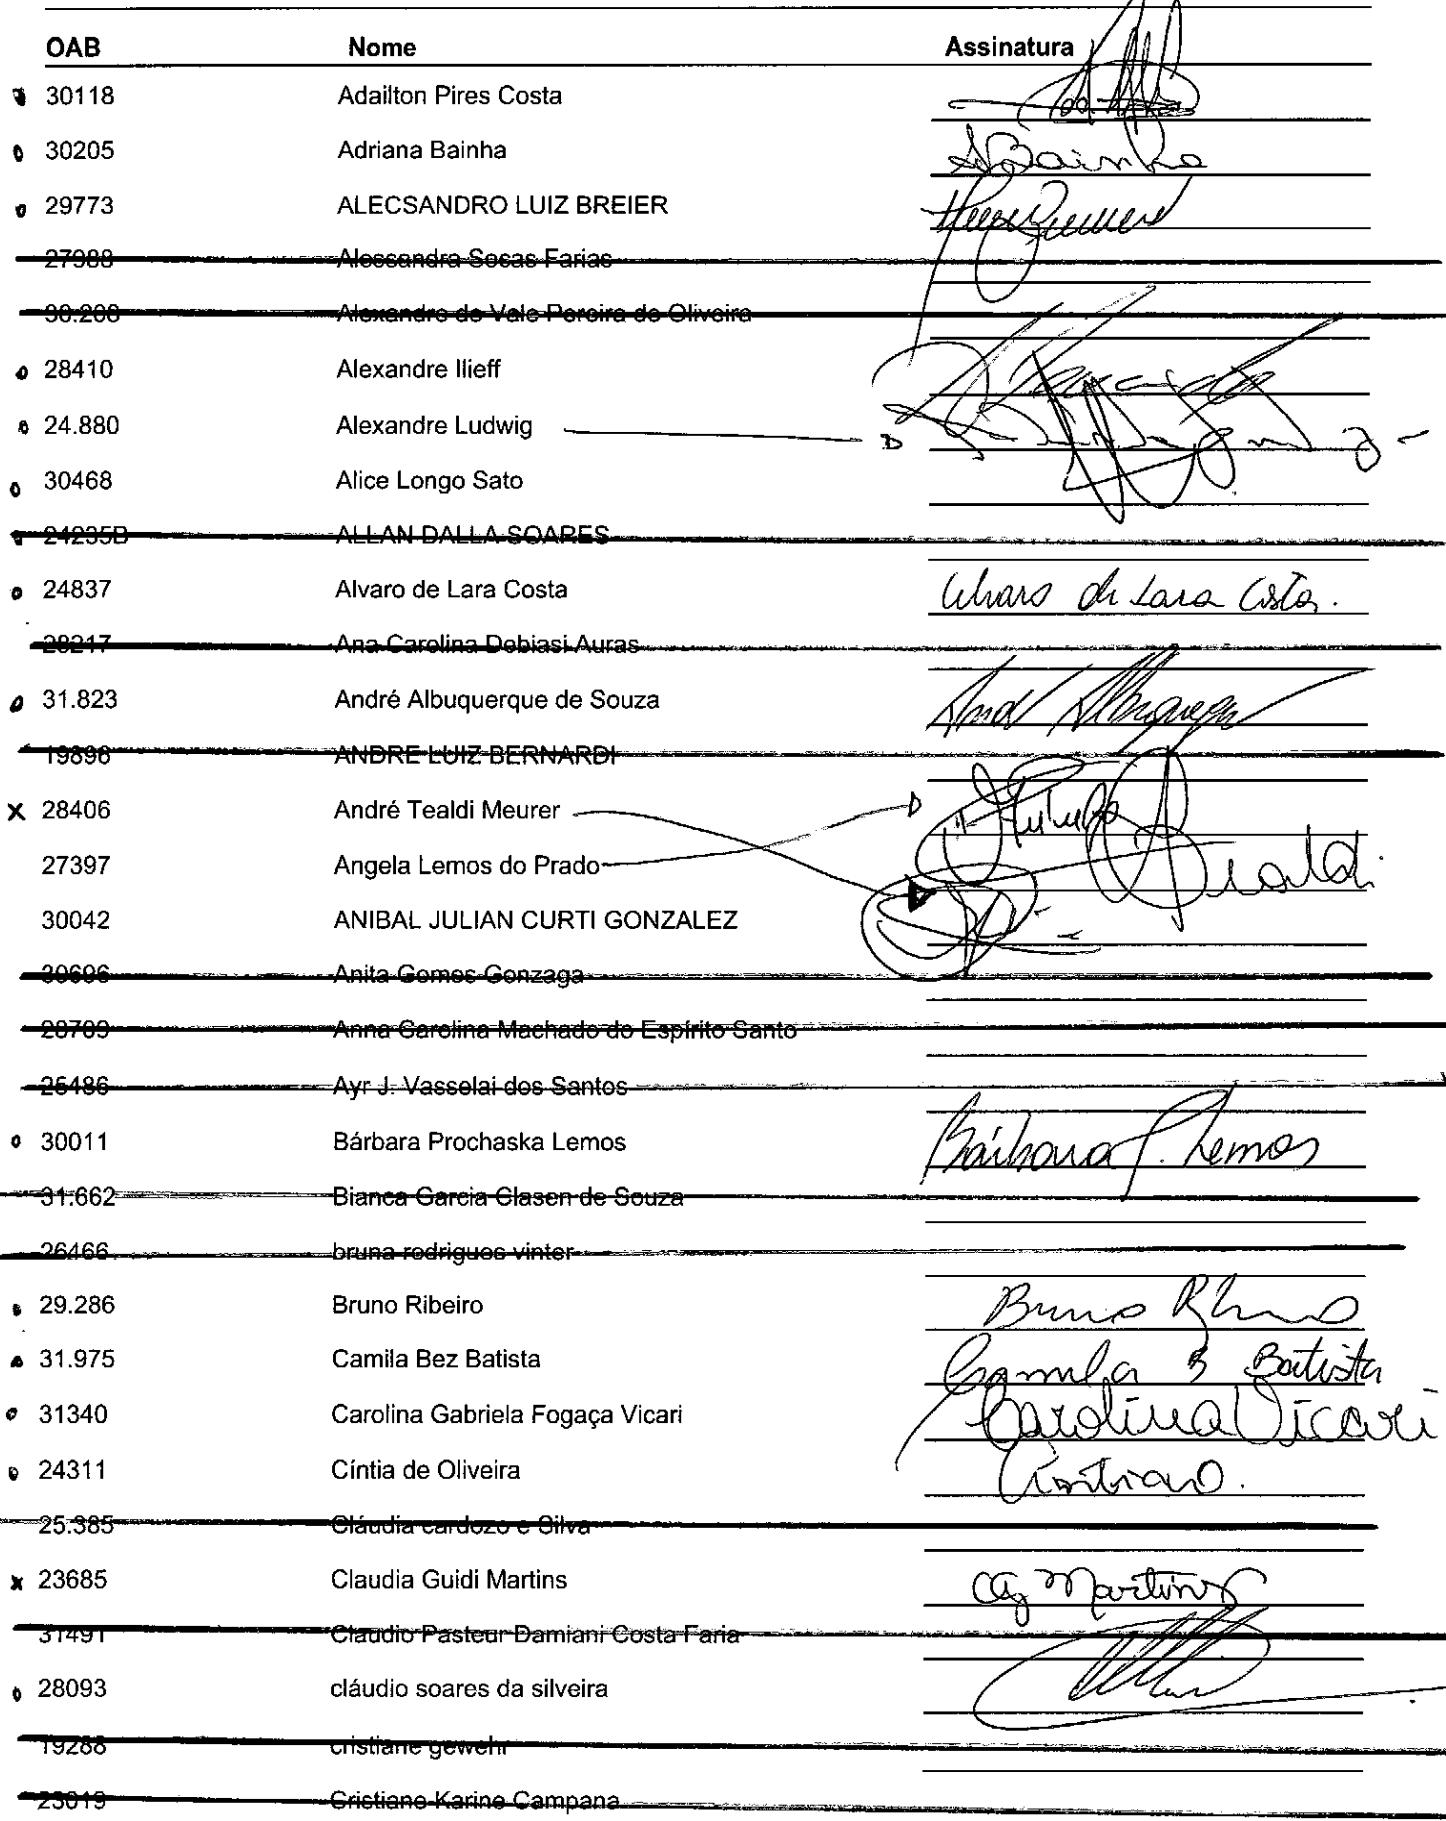 OAB Nome Assinatura
30118 Adailton Pires Costa
30205 Adriana Bainha ABainha
29773 ALECSANDRO LUIZ BREIER
27988 Alessandra Socas Farias
30.208 Alexandre do Vale Pereira de Oliveira
28410 Alexandre Ilieff
24.880 Alexandre Ludwig
30468 Alice Longo Sato
24235B ALLAN DALLA SOARES
24837 Alvaro de Lara Costa Alvaro de Lara Costa.
28217 Ana Carolina Debiasi Auras
31.823 André Albuquerque de Souza
19898 ANDRE LUIZ BERNARDI
X 28406 André Tealdi Meurer
27397 Angela Lemos do Prado
30042 ANIBAL JULIAN CURTI GONZALEZ
30696 Anita Gomes Gonzaga
28709 Anna Carolina Machado do Espírito Santo
25486 Ayr J. Vasselai dos Santos
30011 Bárbara Prochaska Lemos Bárbara P. Lemos
31.662 Bianca Garcia Clasen de Souza
26466 bruna rodrigues vinter
29.286 Bruno Ribeiro Bruno
31.975 Camila Bez Batista Camila B Batista
31340 Carolina Gabriela Fogaça Vicari Carolina Vicari
24311 Cíntia de Oliveira
25.385 Cláudia cardozo e Silva
x 23685 Claudia Guidi Martins CG Martins
31491 Claudio Pasteur Damiani Costa Faria
28093 cláudio soares da silveira
19288 cristiane gewehr
23019 Cristiane Karine Campana